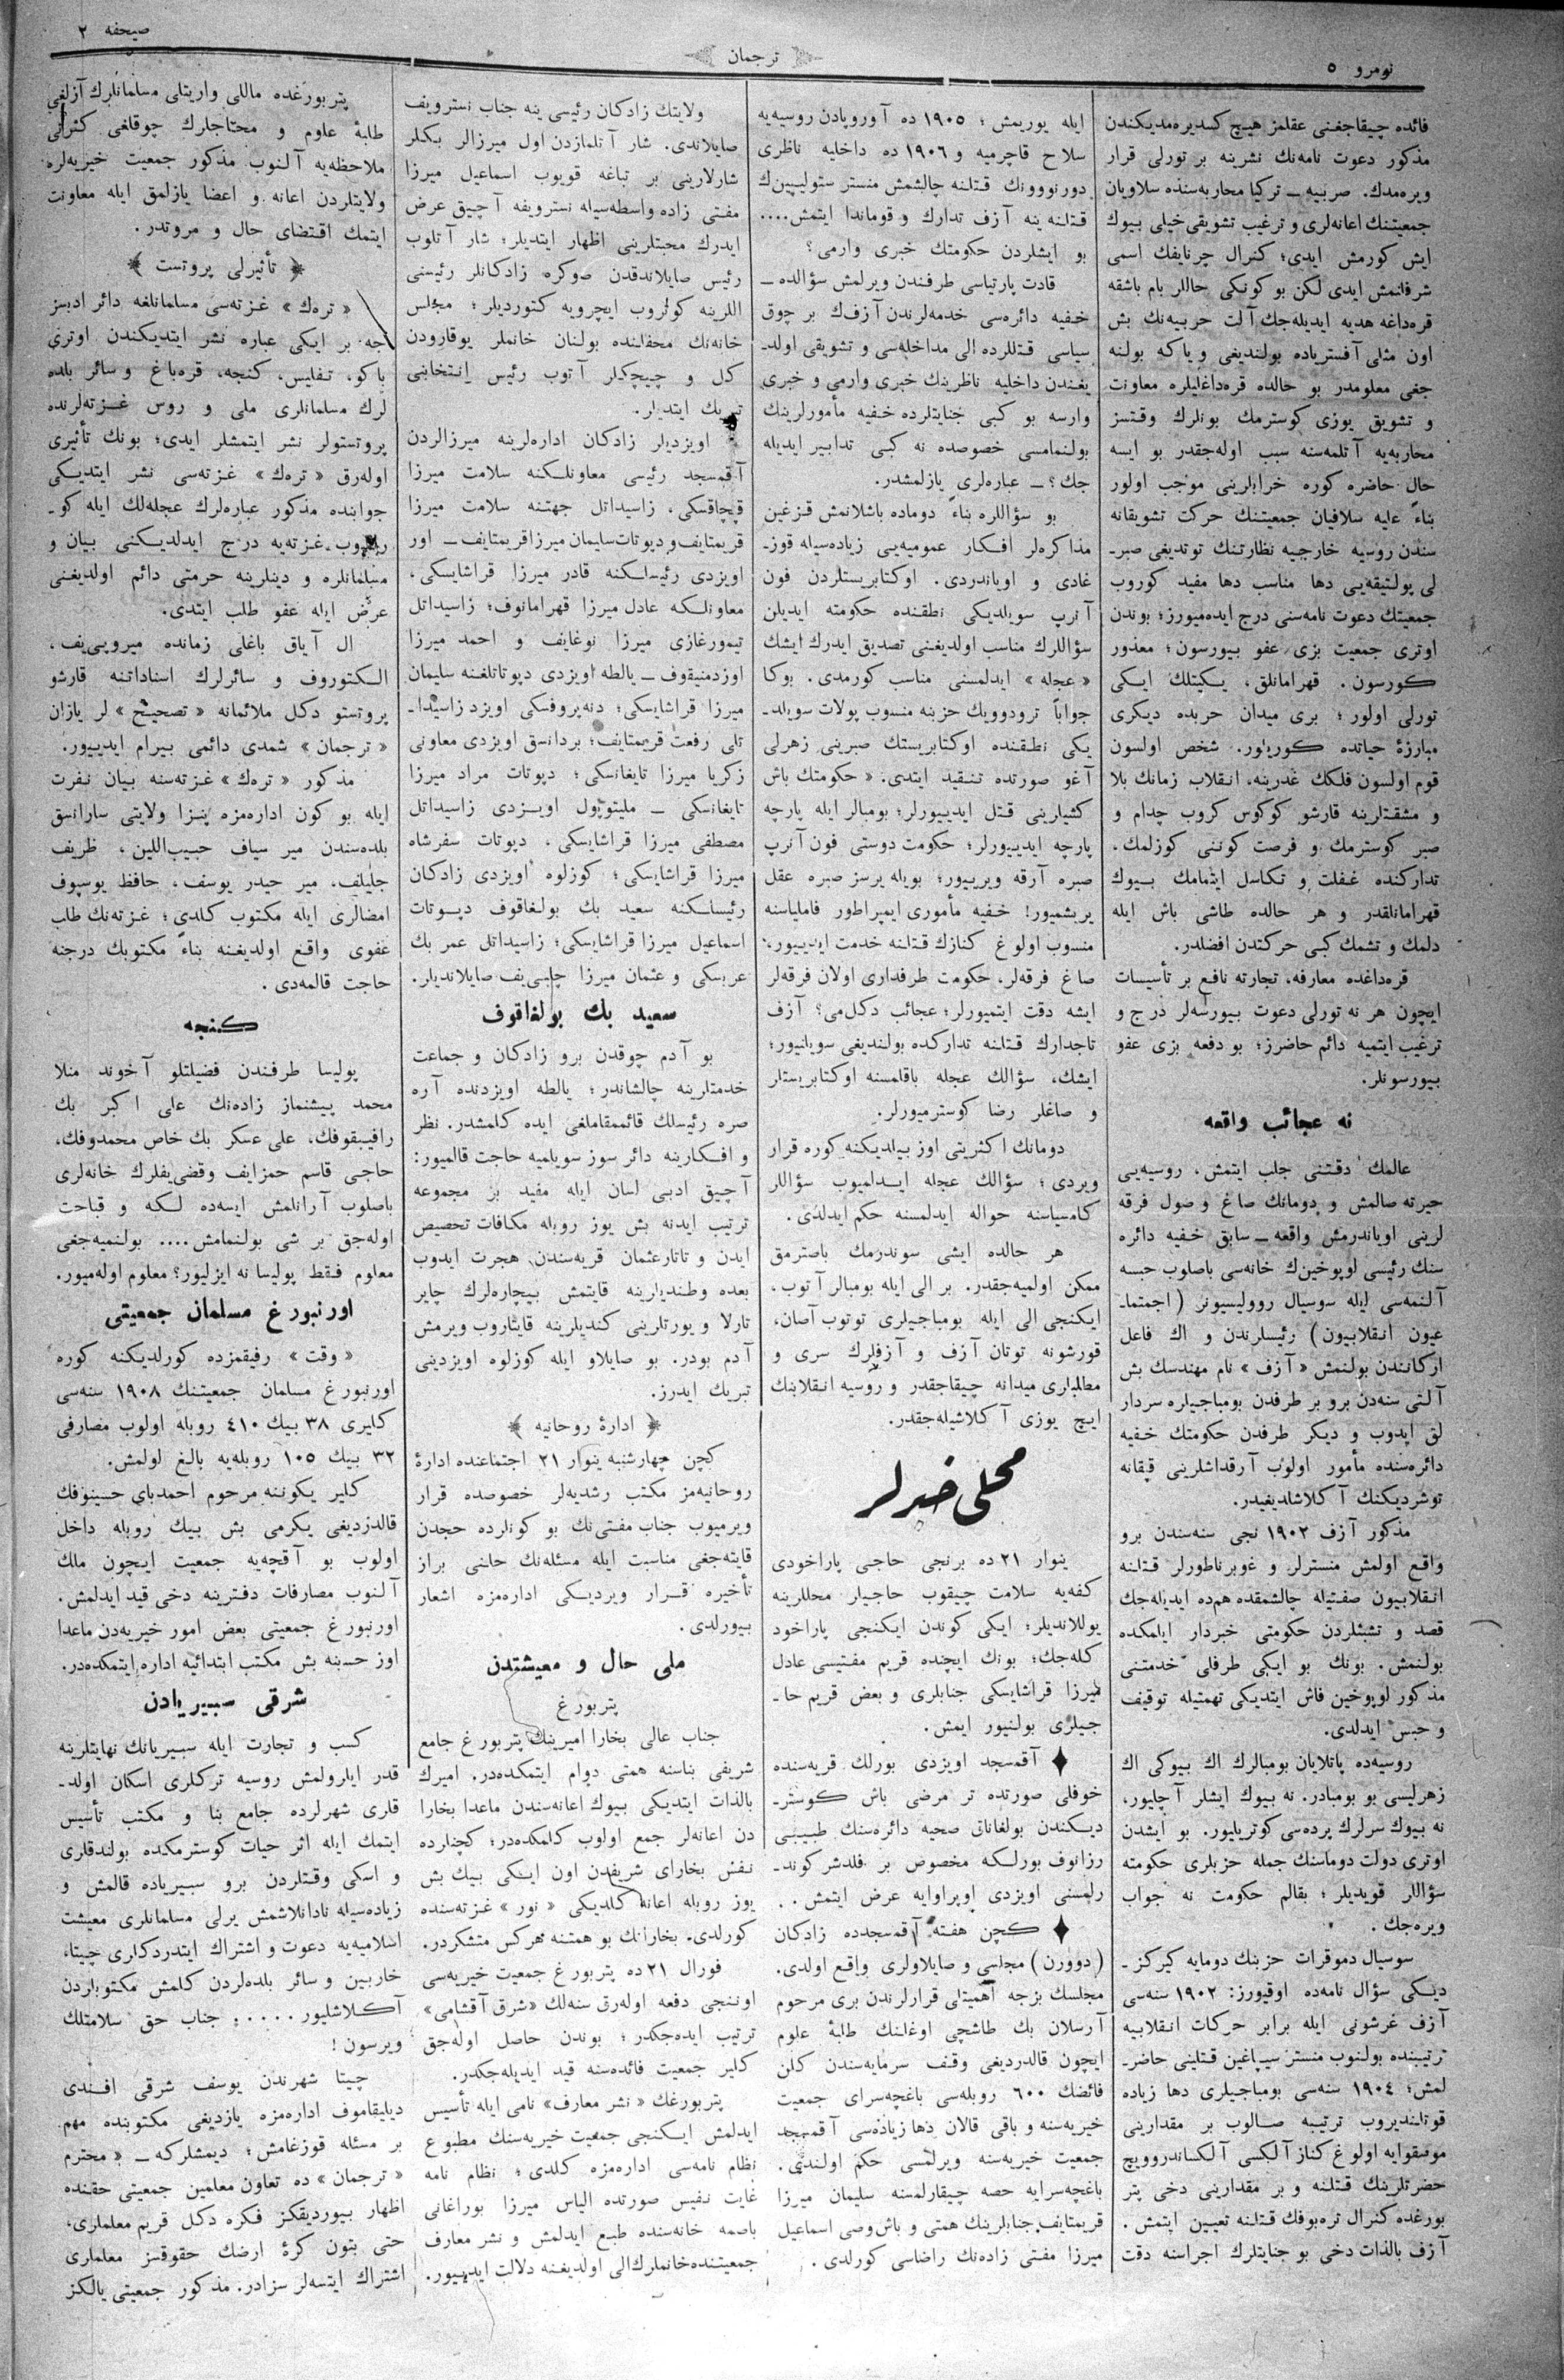 نومرو ٥
ترجمان
صيحفه ٢
فائده چيقاجغنى عقلمز هيچ كسديره‌مديكندن
مذكور دعوت نامه‌نك نشرينه بر تورلى قرار
ويره‌مدك. صربيه ــ تركيا محاربه‌سنده سلاويان
جمعيتنك اعانه‌لرى و ترغيب تشويقى خيلى بيوك
ايش كورمش ايدى؛ كنرال چرنايفك اسمى
شرفانمش ايدى لكن بو كونكى حاللر بام باشقه
قره‌داغه هديه ايديله‌جك آلت حربيه‌نك بش
اون مثلى آفسترياده بولنديغى و ياكه بولنه
جغى معلومدر بو حالده قره‌داغليلره معاونت
و تشويق يوزى كوسترمك بونلرك وقتسز
محاربه‌يه آتلمه‌سنه سبب اوله‌جقدر بو ايسه
حال حاضره كوره خرابلرينى موجب اولور
بناءً عليه سلافيان جمعيتنك حركت تشويقانه
سندن روسيه خارجيه نظارتنك توتديغى صبر-
لى پولتيقه‌يى دها مناسب دها مفيد كوروب
جمعيتك دعوت نامه‌سنى درج ايده‌ميورز؛ بوندن
اوترى جمعيت بزى عفو بيورسون؛ معذور
كورسون. قهرامانلق، يكيتلك ايكى
تورلى اولور؛ برى ميدان حربده ديكرى
مبارزهٔ حياتده كوريلور. شخص اولسون
قوم اولسون فلكك غدرينه، انقلاب زمانك بلا
و مشقتلرينه قارشو كوكوس كروب چدام و
صبر كوسترمك و فرصت كوننى كوزلمك،
تداركنده غفلت و تكاسل ايتمامك بيوك
قهرامانلقدر و هر حالده طاشى باش ايله
دلمك و تشمك كبى حركتدن افضلدر.
قره‌داغده معارفه، تجارته نافع بر تأسيسات
ايچون هر نه تورلى دعوت بيورسه‌لر درج و
ترغيب ايتميه دائم حاضرز؛ بو دفعه بزى عفو
بيورسونلر.
نه عجائب واقعه
عالمك دقتنى جلب ايتمش، روسيه‌يى
حيرته صالمش و دومانك صاغ و صول فرقه
لرينى اوياندرمش واقعه ــ سابق خفيه دائره
سنك رئيسى لوپوخين‌ك خانه‌سى باصلوب حبسه
آلنمه‌سى ايله سوسيال روولیسيونر (اجتما-
عيون انقلابيون) رئيسلرندن و اك فاعل
اركانندن بولنمش «آزف» نام مهندسك بش
آلتى سنه‌دن برو بر طرفدن بومباجيلره سردار
لق ايدوب و ديكر طرفدن حكومتك خفيه
دائره‌سنده مأمور اولوب آرقداشلرينى قپقانه
توشرديكنك آكلاشلديغيدر.
مذكور آزف ١٩٠٢ نجى سنه‌سندن برو
واقع اولمش منسترلر و غوبرناطورلر قتلنه
انقلابيون صفتيله چالشمقده هم‌ده ايديله‌جك
قصد و تشبثلردن حكومتى خبردار ايلمكده
بولنمش. بونك بو ايكى طرفلى خدمتنى
مذكور لوپوخين فاش ايتديكى تهمتيله توقيف
و حبس ايدلدى.
روسيه‌ده پاتلايان بومبالرك اك بيوكى اك
زهرليسى بو بومبادر. نه بيوك ايشلر آچليور،
نه بيوك سرلرك پرده‌سى كوتريليور. بو ايشدن
اوترى دولت دوماسنك جمله حزبلرى حكومته
سؤاللر قويديلر؛ بقالم حكومت نه جواب
ويره‌جك.
سوسيال دموقرات حزبنك دومايه كيركز-
ديكى سؤال نامه‌ده اوقيورز: ١٩٠٢ سنه‌سى
آزف غرشونى ايله برابر حركات انقلابيه
ترتيبنده بولنوب منستر سيپاغين قتلينى حاضر-
لمش؛ ١٩٠٤ سنه‌سى بومباجيلرى دها زياده
قوتلنديروب ترتيبه صالوب بر مقدارينى
موسقوايه اولوغ كناز آلكسى آلكساندروويچ
حضرتلرينك قتلنه و بر مقدارينى دخى پتر
بورغده كنرال تره‌بوفك قتلنه تعيين ايتمش.
آزف بالذات دخى بو جنايتلرك اجراسنه دقت
ايله يوريمش؛ ١٩٠٥ ده آوروپادن روسيه‌يه
سلاح قاچرميه و ١٩٠٦ ده داخليه ناظرى
دورنوونك قتلنه چالشمش منستر ستوليپين‌ك
قتلنه‌ينه آزف تدارك و قوماندا ايتمش....
بو ايشلردن حكومتك خبرى وارمى؟
قادت پارتياسى طرفندن ويرلمش سؤالده ــ
خفيه دائره‌سى خدمه‌لرندن آزف‌ك بر چوق
سياسى قتللرده الى مداخله‌سى و تشويقى اولد-
يغندن داخليه ناظرينك خبرى وارمى و خبرى
وارسه بو كبى جنايتلرده خفيه مأمورلرينك
بولنمامسى خصوصده نه كبى تدابير ايديله
جك؟ ــ عباره‌لرى يازلمشدر.
بو سؤاللره بناءً دوماده باشلانمش قزغين
مذاكره‌لر افكار عموميه‌يى زياده‌سيله قوز-
غادى و اوياندردى. اوكتابريستلردن فون
آنرپ سويلديكى نطقنده حكومته ايديلن
سؤاللرك مناسب اولديغنى تصديق ايدرك ايشك
«عجله» ايدلمسنى مناسب كورمدى. بوكا
جواباً ترودوويك حزبنه منسوب پولات سويلد-
يكى نطقنده اوكتابريستك صبرينى زهرلى
آغو صورتده تنقيد ايتدى. «حكومتك باش
كشيارينى قتل ايديیورلر؛ بومبالر ايله پارچه
پارچه ايديیورلر؛ حكومت دوستى فون آنرپ
صبره آرقه ويريیور؛ بويله يرسز صبره عقل
يريشميور! خفيه مأمورى ايمپراطور فاميلياسنه
منسوب اولوغ كنازك قتلنه خدمت ايديیور،
صاغ فرقه‌لر، حكومت طرفدارى اولان فرقه‌لر
ايشه دقت ايتميورلر؛ عجائب دكل‌مى؟ آزف
تاجدارك قتلنه تداركده بولنديغى سويلنيور؛
ايشك، سؤالك عجله باقلمسنه اوكتابريستلر
و صاغلر رضا كوسترميورلر.
دومانك اكثريتى اوز بيلديكنه كوره قرار
ويردى؛ سؤالك عجله ايدلميوب سؤاللر
كامسياسنه حواله ايدلمسنه حكم ايدلدى.
هر حالده ايشى سوندرمك باصترمق
ممكن اولميه‌جقدر. بر الى ايله بومبالر آتوب،
ايكنجى الى ايله بومباجيلرى توتوب آصان،
قورشونه توتان آزف و آزفلرك سرى و
مطلبلرى ميدانه چيقاجقدر و روسيه انقلابنك
ايچ يوزى آكلاشيله‌جقدر.
محلى خبرلر
ينوار ٢١ ده برنجى حاجى پاراخودى
كفه‌يه سلامت چيقوب حاجيلر محللرينه
يوللانديلر؛ ايكى كوندن ايكنجى پاراخود
كله‌جك؛ بونك ايچنده قريم مفتيسى عادل
ميرزا قراشايسكى جنابلرى و بعض قريم حا-
جيلرى بولنيور ايمش.
آقمسجد اويزدى بورلك قريه‌سنده
خوفلى صورتده تر مرضى باش كوستر-
ديكندن بولغاناق صحيه دائره‌سنك طبيبى
رزانوف بورلكه مخصوص بر فلدشر كوند-
رلمسنى اويزدى اوپراوايه عرض ايتمش.
كچن هفته آقمسجدده زادكان
(دوورن) مجلسى و صايلاولرى واقع اولدى.
مجلسك بزجه اهميتلى قرارلرندن برى مرحوم
آرسلان بك طاشچى اوغلنك طلبهٔ علوم
ايچون قالدرديغى وقف سرمايه‌سندن كلن
فائضك ٦٠٠ روبله‌سى باغچه‌سراى جمعيت
خيريه‌سنه و باقى قالان دها زياده‌سى آقمسجد
جمعيت خيريه‌سنه ويرلمسى حكم اولندى.
باغچه‌سرايه حصه چيقارلمسنه سليمان ميرزا
قريمتايف جنابلرينك همتى و باش وصى اسماعيل
ميرزا مفتى زاده‌نك راضاسى كورلدى.
ولايتك زادكان رئيسى ينه جناب نسترويف
صايلاندى. شار آتلمازدن اول ميرزالر بكلر
شارلارينى بر تباغه قويوب اسماعيل ميرزا
مفتى زاده واسطه‌سيله نسترويفه آچيق عرض
ايدرك محبتلرينى اظهار ايتديلر؛ شار آتلوب
رئيس صايلاندقدن صوكره زادكانلر رئيسنى
اللرينه كوتروب ايچرويه كتورديلر؛ مجلس
خانه‌نك محفلنده بولنان خانملر يوقارودن
كل و چيچكلر آتوب رئيس انتخابنى
تبريك ايتديلر.
اويزديلر زادكان اداره‌لرينه ميرزالردن
آقمسجد رئيسى معاونلكنه سلامت ميرزا
قپچاقسكى، زاسيداتل جهتنه سلامت ميرزا
قريمتايف و ديوتات سليمان ميرزا قريمتايف ــ اور
اويزدى رئيسلكنه قادر ميرزا قراشايسكى،
معاونلكه عادل ميرزا قهرامانوف؛ زاسيداتل
تيمورغازى ميرزا نوغايف و احمد ميرزا
اوزدمنيقوف ــ يالطه اويزدى ديوتاتلغنه سليمان
ميرزا قراشايسكى؛ دنه‌پروفسكى اويزد زاسيدا-
تلى رفعت قريمتايف؛ بردانسق اويزدى معاونى
زكريا ميرزا تايغانسكى؛ ديوتات مراد ميرزا
تايغانسكى ــ مليتوپول اويزدى زاسيداتل
مصطفى ميرزا قراشايسكى، ديوتات سفرشاه
ميرزا قراشايسكى؛ كوزلوه اويزدى زادكان
رئيسلكنه سعيد بك بولغاقوف ديوتات
اسماعيل ميرزا قراشايسكى؛ زاسيداتل عمر بك
عربسكى و عثمان ميرزا چلبى‌يف صايلانديلر.
سعيد بك بولغاقوف
بو آدم چوقدن برو زادكان و جماعت
خدمتلرينه چالشاندر؛ يالطه اويزدنده آره
صره رئيسلك قائممقاملغى ايده كلمشدر. نظر
و افكارينه دائر سوز سويلميه حاجت قالميور:
آچيق ادبى لسان ايله مفيد بر مجموعه
ترتيب ايدنه بش يوز روبله مكافات تحصيص
ايدن و تاتارعثمان قريه‌سندن هجرت ايدوب
بعده وطنديلرينه قايتمش بيچاره‌لرك چاير
تارلا و يورتلرينى كنديلرينه قايتاروب ويرمش
آدم بودر. بو صايلاو ايله كوزلوه اويزدينى
تبريك ايدرز.
ادارهٔ روحانيه
كچن چهارشنبه ينوار ٢١ اجتماعنده ادارهٔ
روحانيه‌مز مكتب رشديه‌لر خصوصده قرار
ويرميوب جناب مفتى‌نك بو كونلرده حجدن
قايته‌جغى مناسبت ايله مسئله‌نك حلنى براز
تأخيره قرار ويرديكى اداره‌مزه اشعار
بيورلدى.
ملى حال و معيشتدن
پتربورغ
جناب عالى بخارا اميرينك پتربورغ جامع
شريفى بناسنه همتى دوام ايتمكده‌در. اميرك
بالذات ايتديكى بيوك اعانه‌سندن ماعدا بخارا
دن اعانه‌لر جمع اولوب كلمكده‌در؛ كچنلرده
نفس بخاراى شريفدن اون ايكى بيك بش
يوز روبله اعانه كلديكى «نور» غزته‌سنده
كورلدى. بخارانك بو همتنه هركس متشكردر.
فورال ٢١ ده پتربورغ جمعيت خيريه‌سى
اوننجى دفعه اوله‌رق سنه‌لك «شرق آقشامى»
ترتيب ايده‌جكدر؛ بوندن حاصل اوله‌جق
كلير جمعيت فائده‌سنه قيد ايديله‌جكدر.
پتربورغك «نشر معارف» نامى ايله تأسيس
ايدلمش ايكنجى جمعيت خيريه‌سنك مطبوع
نظام نامه‌سى اداره‌مزه كلدى؛ نظام نامه
غايت نفيس صورتده الياس ميرزا بوراغانى
باصمه خانه‌سنده طبع ايدلمش و نشر معارف
جمعيتنده خانملرك الى اولديغنه دلالت ايديیور.
پتربورغده ماللى واريتلى مسلمانلرك آزلغى
طلبهٔ علوم و محتاجلرك چوقلغى كثرلى
ملاحظه‌يه آلنوب مذكور جمعيت خيريه‌لره
ولايتلردن اعانه و اعضا يازلمق ايله معاونت
ايتمك اقتضاى حال و مروتدر.
تأثيرلى پروتست
«تره‌ك» غزته‌سى مسلمانلغه دائر ادبسز
جه بر ايكى عباره نشر ايتديكندن اوترى
باكو، تفليس، كنجه، قره‌باغ و سائر بلده
لرك مسلمانلرى ملى و روس غزته‌لرنده
پروتستولر نشر ايتمشلر ايدى؛ بونك تأثيرى
اوله‌رق «تره‌ك» غزته‌سى نشر ايتديكى
جوابنده مذكور عباره‌لرك عجله‌لك ايله كو-
ريلوب غزته‌يه درج ايدلديكنى بيان و
مسلمانلره و دينلرينه حرمتى دائم اولديغنى
عرض ايله عفو طلب ايتدى.
ال آياق باغلى زمانده ميروپى‌يف،
الكتوروف و سائرلرك اسناداتنه قارشو
پروتستو دكل ملائمانه «تصحيح» لر يازان
«ترجمان» شمدى دائمى بيرام ايديیور.
مذكور «تره‌ك» غزته‌سنه بيان نفرت
ايله بو كون اداره‌مزه پنزا ولايتى سارانسق
بلده‌سندن مير سياف حبيب‌اللين، ظريف
جليلف، مير حيدر يوسف، حافظ يوسپوف
امضالرى ايله مكتوب كلدى؛ غزته‌نك طلب
عفوى واقع اولديغنه بناءً مكتوبك درجنه
حاجت قالمه‌دى.
كنجه
پوليسا طرفندن فضيلتلو آخوند منلا
محمد پيشنماز زاده‌نك على اكبر بك
رافيبقوفك، على عسكر بك خاص محمدوفك،
حاجى قاسم حمزايف و قضى‌يفلرك خانه‌لرى
باصلوب آرانلمش ايسه‌ده لكه و قباحت
اوله‌جق بر شى بولنمامش.... بولنميه‌جغى
معلوم فقط پوليسا نه ايزليور؟ معلوم اوله‌ميور.
اورنبورغ مسلمان جمعيتى
«وقت» رفيقمزده كورلديكنه كوره
اورنبورغ مسلمان جمعيتنك ١٩٠٨ سنه‌سى
كليرى ٣٨ بيك ٤١٠ روبله اولوب مصارفى
٣٢ بيك ١٠٥ روبله‌يه بالغ اولمش.
كلير يكوننه مرحوم احمدباى حسينوفك
قالدزديغى يكرمى بش بيك روبله داخل
اولوب بو آقچه‌يه جمعيت ايچون ملك
آلنوب مصارفات دفترينه دخى قيد ايدلمش.
اورنبورغ جمعيتى بعض امور خيريه‌دن ماعدا
اوز حسبنه بش مكتب ابتدائيه اداره ايتمكده‌در.
شرقى سبيريادن
كسب و تجارت ايله سبيريانك نهايتلرينه
قدر ايارولمش روسيه تركلرى اسكان اولد-
قلرى شهرلرده جامع بنا و مكتب تأسيس
ايتمك ايله اثر حيات كوسترمكده بولندقلرى
و اسكى وقتلردن برو سبيرياده قالمش و
زياده‌سيله نادانلاشمش يرلى مسلمانلرى معيشت
اسلاميه‌يه دعوت و اشتراك ايتدردكلرى چيتا،
خاربين و سائر بلده‌لردن كلمش مكتوبلردن
آكلاشليور.... جناب حق سلامتلك
ويرسون!
چيتا شهرندن يوسف شرقى افندى
ديليقاموف اداره‌مزه يازديغى مكتوبنده مهم
بر مسئله قوزغامش؛ ديمشلركه ــ «محترم
«ترجمان» ده تعاون معلمين جمعيتى حقنده
اظهار بيورديقكز فكره دكل قريم معلملرى،
حتى بتون كرهٔ ارضك حقوقسز معلملرى
اشتراك ايتسه‌لر سزادر. مذكور جمعيتى يالكز